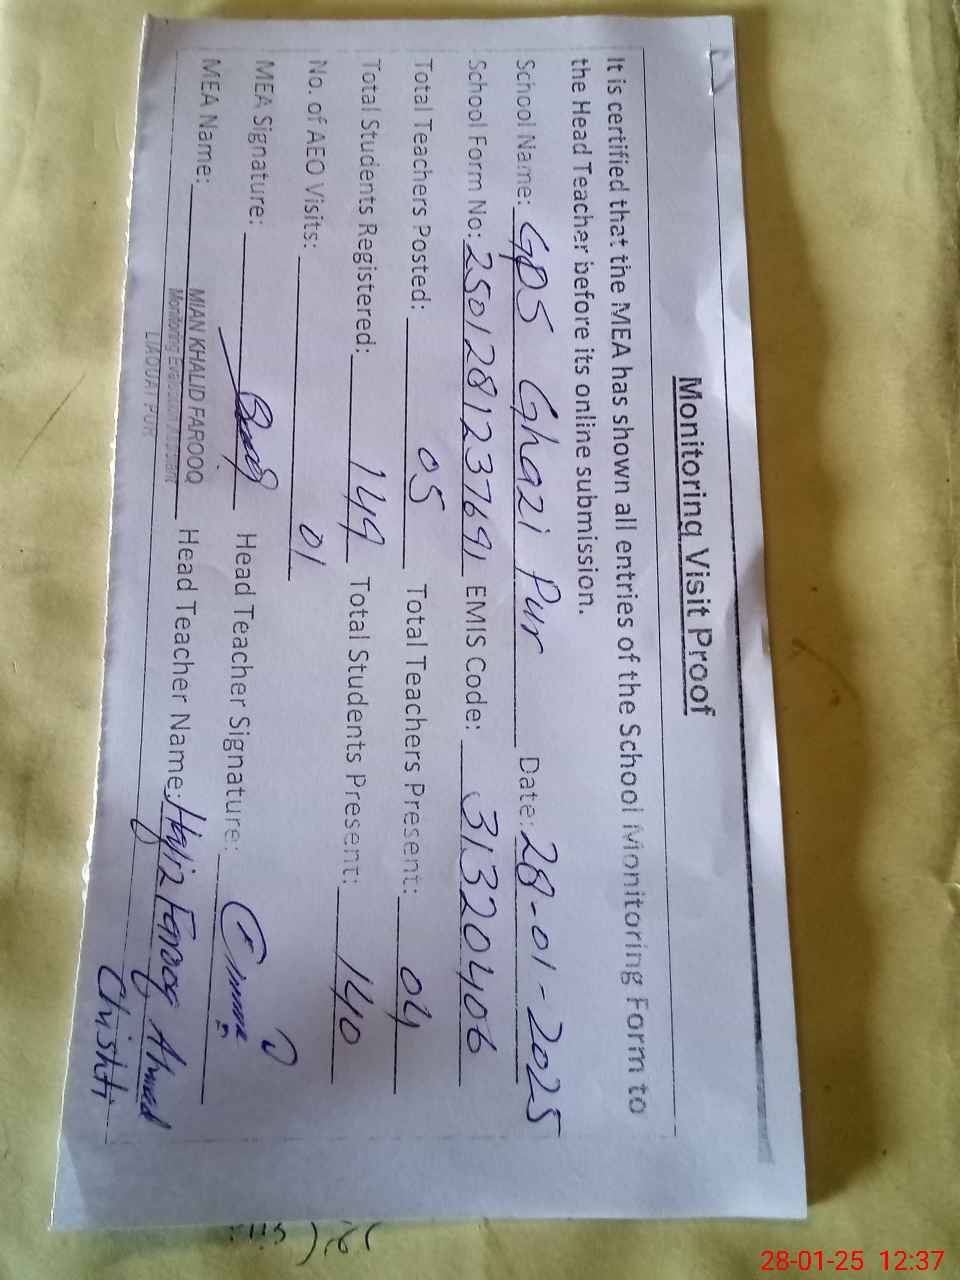 Monitoring Visit Proof
It is certified that the MEA has shown all entries of the School Monitoring Form to
the Head Teacher before its online submission.
School Name: GPS Ghazi Pur Date: 28-01-2025
School Form No: 2501281237691 EMIS Code: 31320406
Total Teachers Posted: 05 Total Teachers Present: 04
Total Students Registered: 149 Total Students Present: 140
No. of AEO Visits: 01
MEA Signature: Head Teacher Signature:
MEA Name: MIAN KHALID FAROOQ Head Teacher Name: Hafiz Farooq Ahmad
Monitoring Evaluation Assistant
LIAQUAT PUR
Chishti
28-01-25 12:37